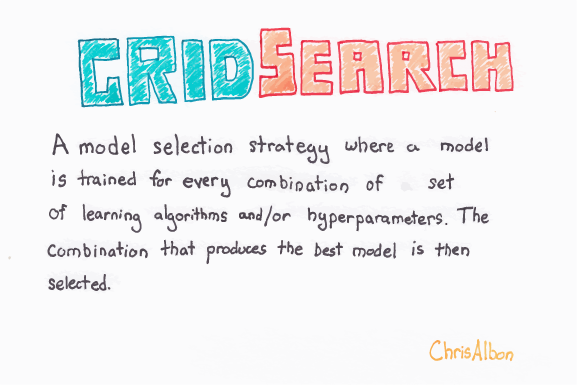 GRIDSEARCH
A model selection strategy where a model
is trained for every combination of a set
of learning algorithms and/or hyperparameters. The
Combination that produces the best model is then
selected.
ChrisAlbon